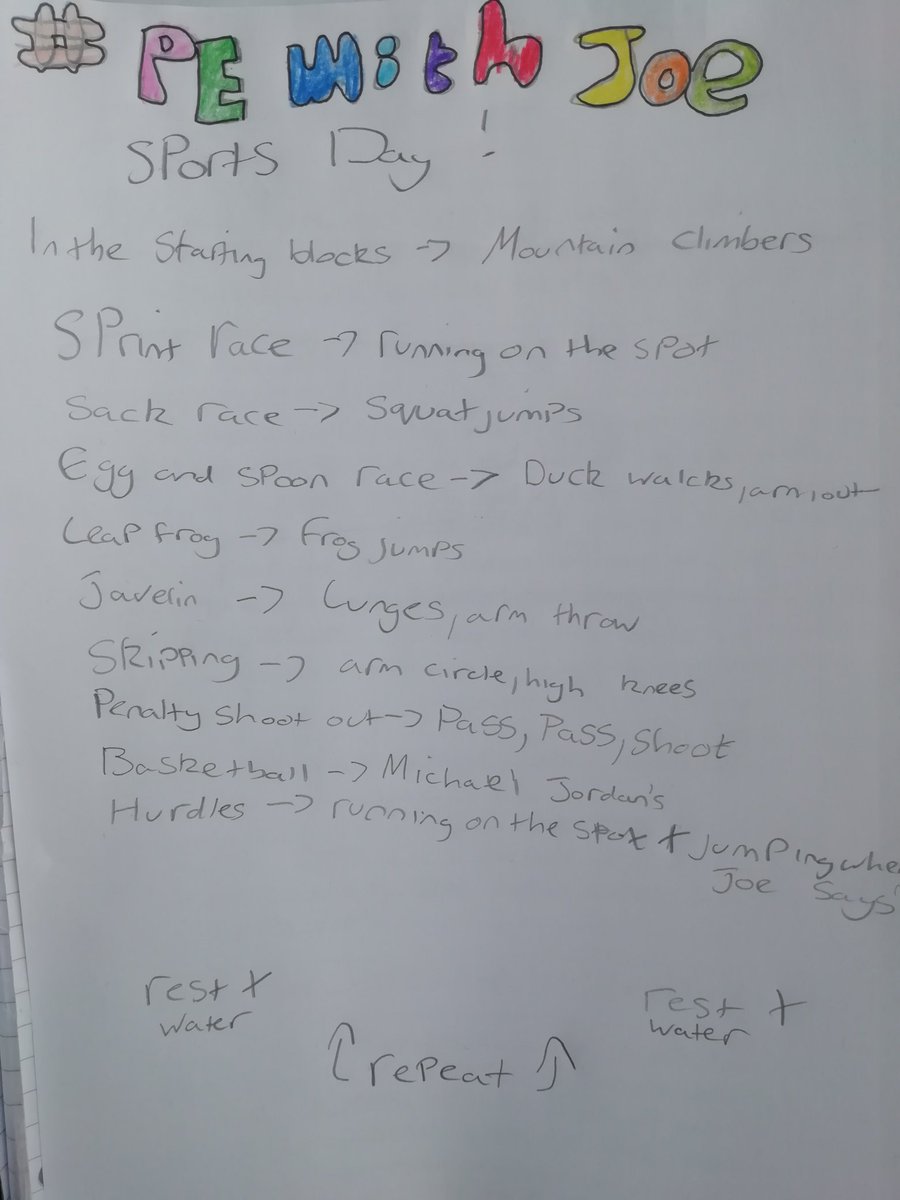 # PE With Joe
Sports Day !
In the Starting blocks -> Mountain Climbers
Sprint race -> running on the spot
Sack race -> Squat jumps
Egg and spoon race -> Duck walcks, arm, out
Leap frog -> Frog jumps
Javelin -> Lunges, arm throw
Skipping -> arm circle, high knees
Penalty shoot out -> Pass, Pass, Shoot
Basketball -> Michael Jordan's
Hurdles -> running on the spot + jumping whe
Joe says
rest + rest +
water water
↑ repeat ↑